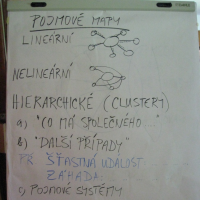 POJMOVÉ MAPY
LINEÁRNÍ
NELINEÁRNÍ
HIERARCHICKÉ (CLUSTERY)
a) "CO MÁ SPOLEČNÉHO..."
b) "DALŠÍ PŘÍPADY"
PŘ. ŠŤASTNÁ UDÁLOST
ZÁHADA
c) POJMOVÉ SYSTÉMY